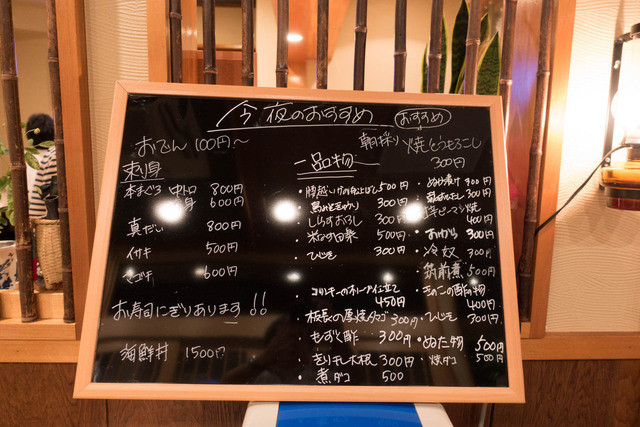 今夜のおすすめ
おすすめ
朝採り 焼とうもろこし
300円
おでん 100円〜
刺身
本まぐろ 中トロ 800円
赤身 600円
真だい 800円
イサキ 500円
マゴチ 600円
お寿司にぎりあります!!
海鮮丼 1500円
一品物
500円
300円
しらすおろし 300円
米なす田楽 500円
ひじき 300円
仕立て
450円
板長の厚焼タマゴ 300円
もずく酢 300円
切り干し大根 300円
煮ダコ 500
ぬか漬け 300円
300円
ピーマン焼
400円
おから 300円
冷奴 300円
筑前煮 500円
きのこの酢の物
400円
ひじき 300円
ぬた物 500円
焼ダコ 500円